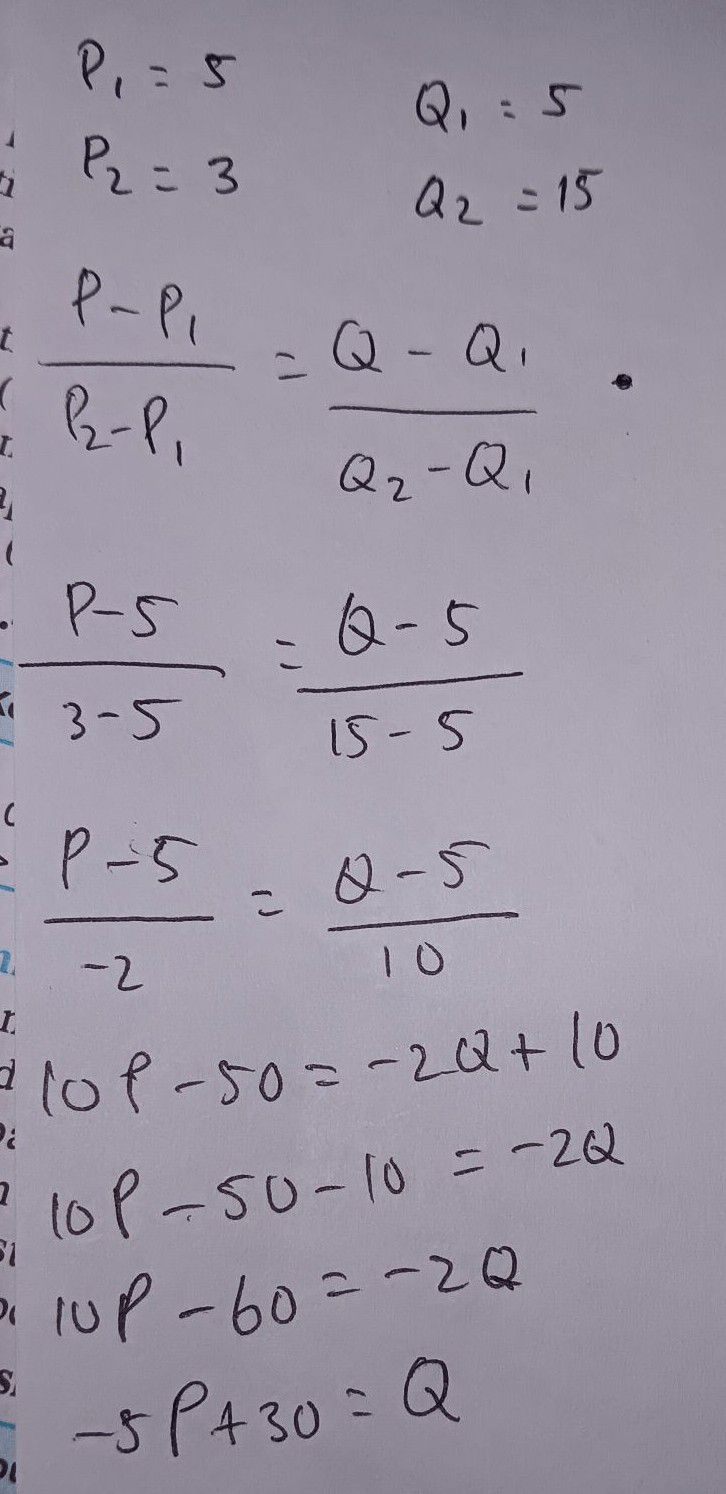 P₁ = 5
Q₁ = 5
P₂ = 3
Q₂ = 15
P - P₁ / P₂ - P₁ = Q - Q₁ / Q₂ - Q₁
P - 5 / 3 - 5 = Q - 5 / 15 - 5
P - 5 / -2 = Q - 5 / 10
10P - 50 = -2Q + 10
10P - 50 - 10 = -2Q
10P - 60 = -2Q
-5P + 30 = Q